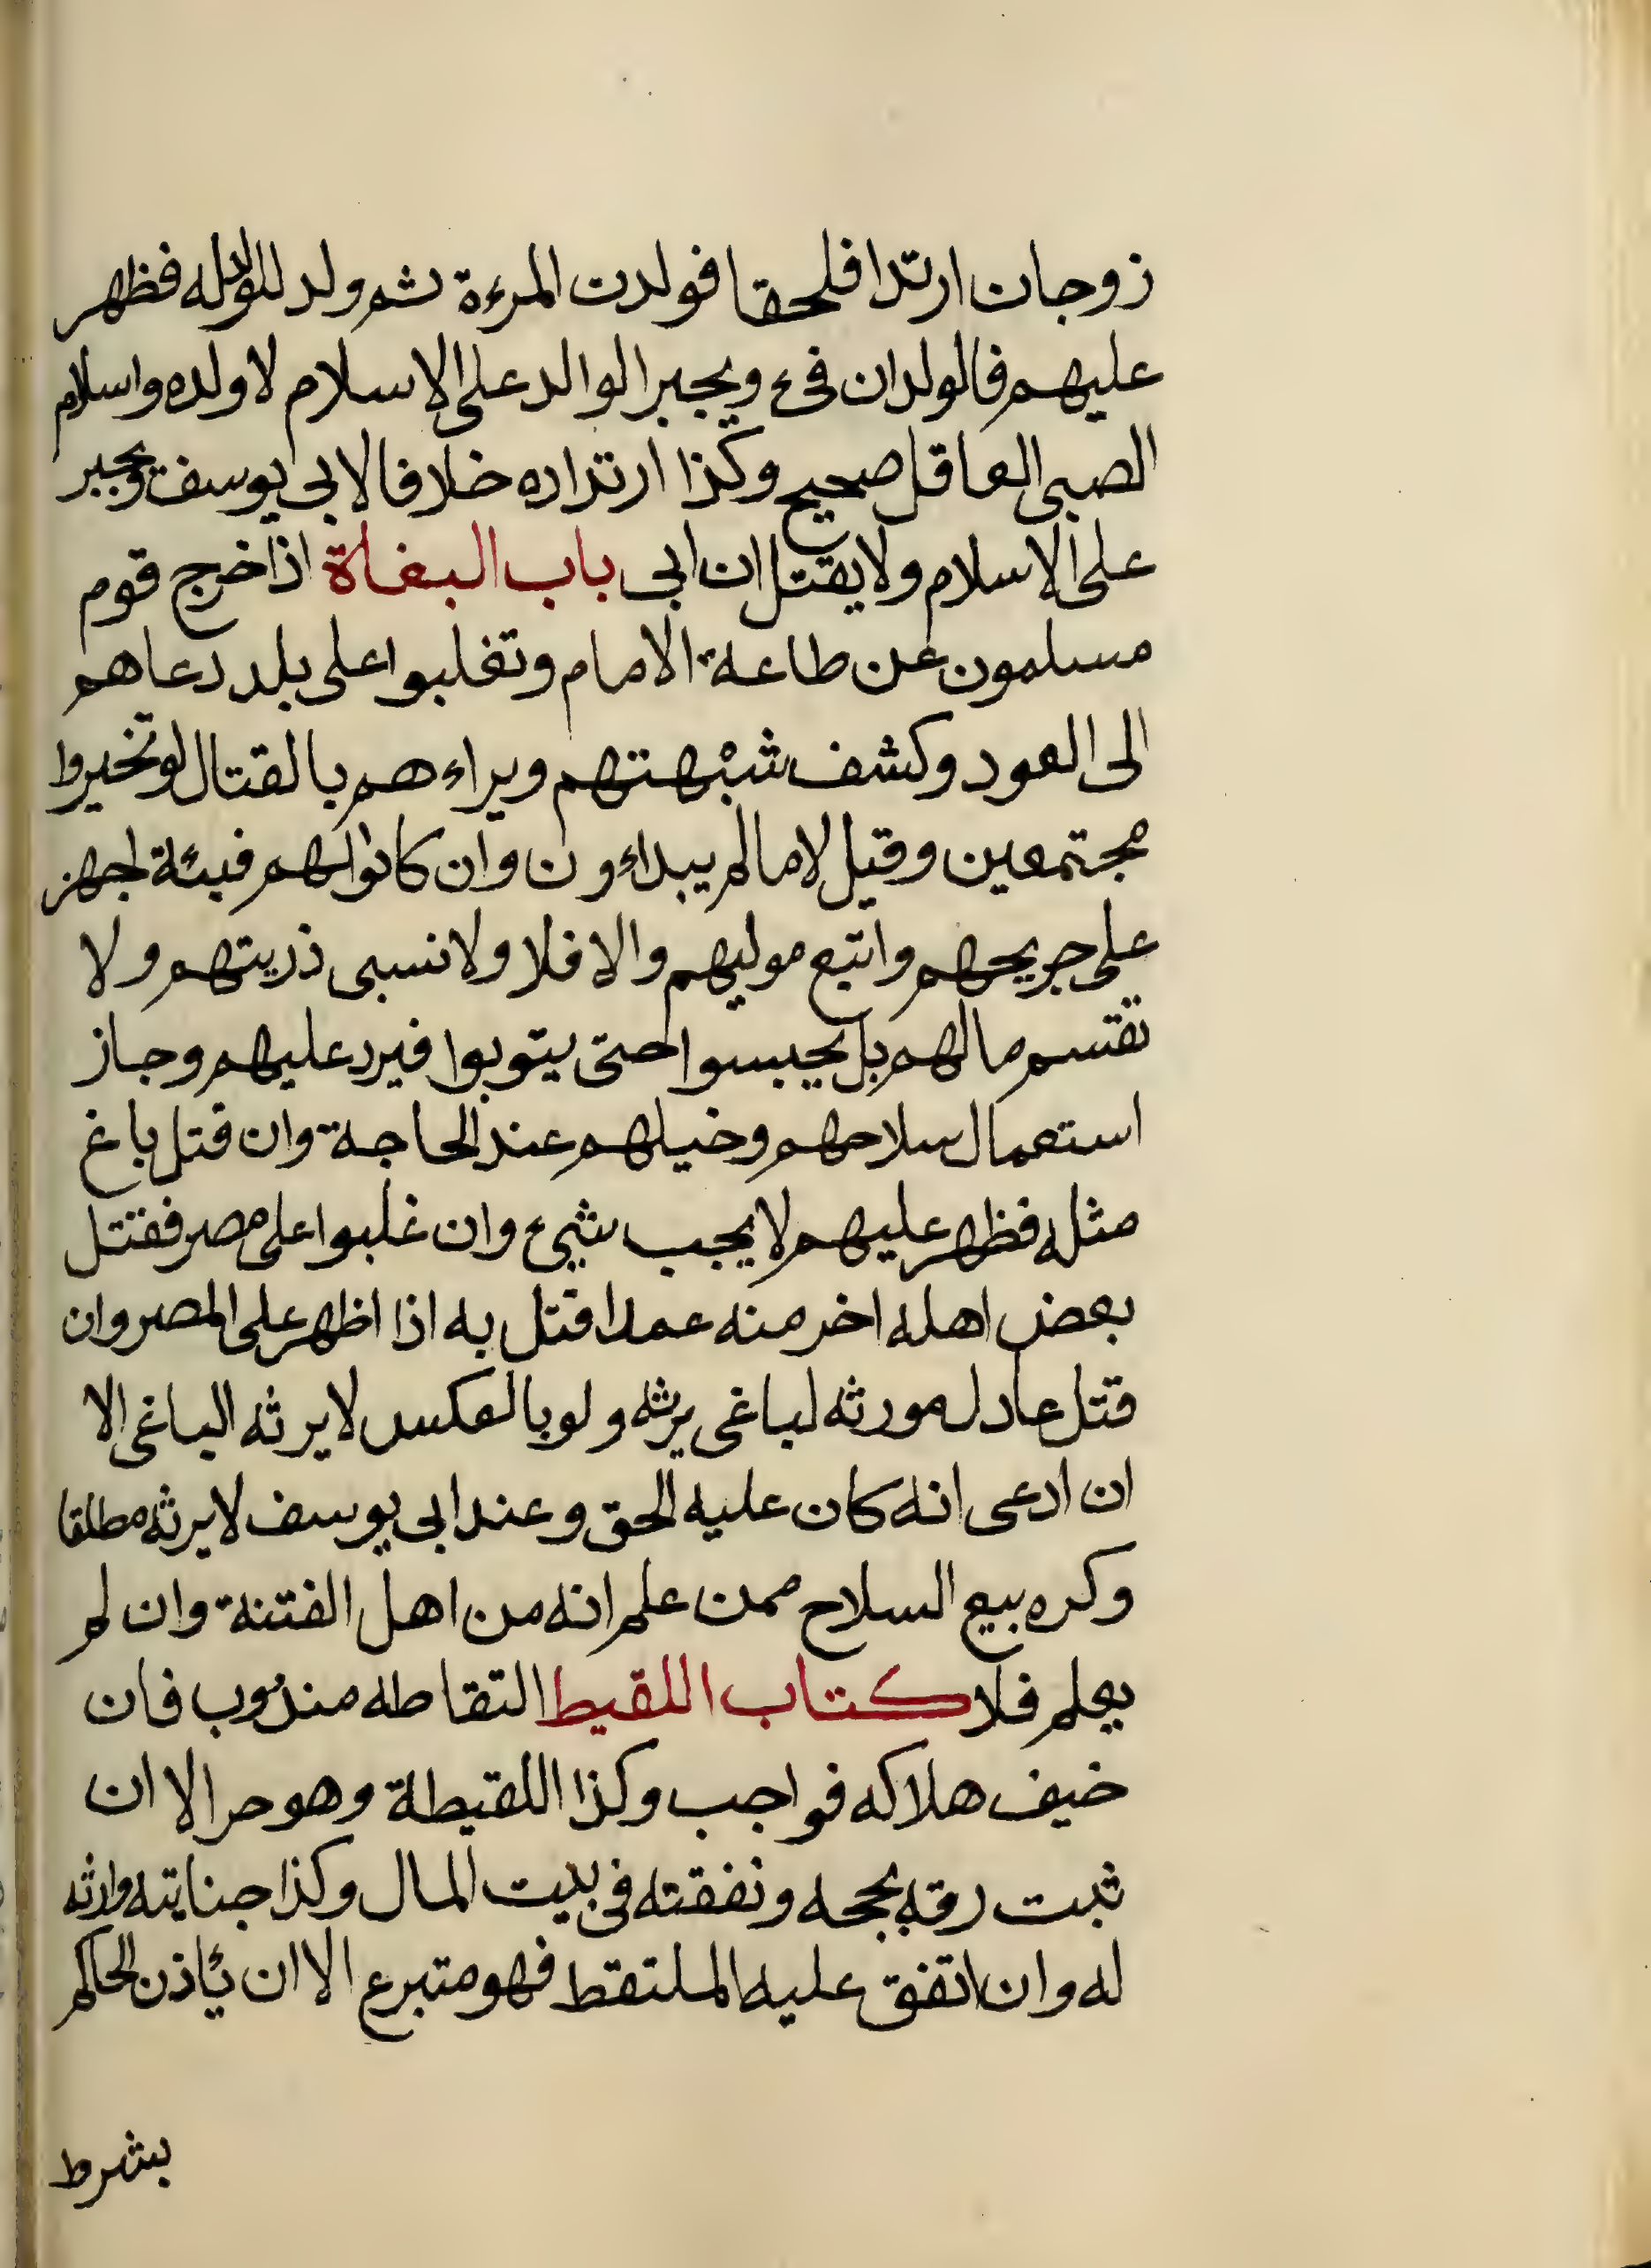 زوجان ارتدا فلحقا فولدت المرءة ثم ولد للولد له فظهر
عليهم فالولدان فئ ويجبر الوالد على الاسلام لا ولده واسلام
الصبى العاقل صحيح وكذا ارتداده خلافا لابى يوسف ويجبر
على الاسلام ولا يقتل ان ابى باب البغاة اذا خرج قوم
مسلمون عن طاعة الامام وتغلبوا على بلد دعاهم
الى العود وكشف شبْهتهم ويبداءهم بالقتال لو تحيزوا
مجتمعين وقيل لا ما لم يبداءون وان كانوا لهم فيئة اجهز
على جريحهم واتبع موليهم والا فلا ولا نسبى ذريتهم ولا
تقتسم مالهم بل يحبسوا حتى يتوبوا فيرد عليهم وجاز
استعمال سلاحهم وخيلهم عند الحاجة وان قتل باغ
مثله فظهر عليهم لا يجب شيئ وان غلبوا على مصر فقتل
بعض اهله اخر منه عمدا قتل به اذا اظهر على المصر وان
قتل عادل مورثه لباغى يرثه ولو بالعكس لا يرثه الباغى الا
ان ادعى انه كان عليه الحق وعند ابى يوسف لا يرثه مطلقا
وكره بيع السلاح ممن علم انه من اهل الفتنة وان لم
يعلم فلا كتاب اللقيط التقاطه مندوب فان
خيف هلاكه فواجب وكذا اللقيطة وهو حر الا ان
ثبت رقه بحجه ونفقته فى بيت المال وكذا جنايته وارثه
له وان اتفق عليه الملتقط فهو متبرع الا ان يئاذن الحاكم
بشرط